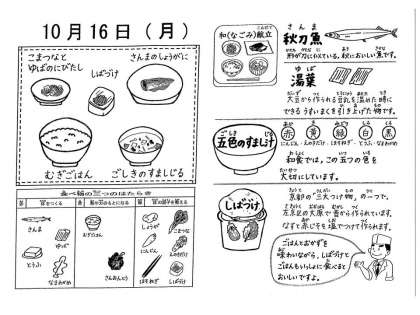 10月16日（月）
こまつなと
ゆばのにびたし
しばづけ
さんまのしょうがに
むぎごはん
ごしきのすましじる
食べ物の三つのはたらき
さんま
ゆば
とうふ
なまわかめ
むぎごはん
さんおんとう
しょうが
にんじん
はすねぎ
こまつな
和(なごみ)献立
さんま
秋刀魚
形が刀ににている、秋においしい魚です。
ゆば
湯葉
大豆から作られる豆乳を温めた時に
できるうすいまくを引き上げた物です。
ごしき
五色のすまし汁
赤 黄 緑 白 黒
あか き みどり しろ くろ
にんじん・えのきだけ・はすねぎ・とうふ・なまわかめ
和食では、この五つの色を
大切にしています。
しばづけ
京都の「三大つけ物」の一つで、
左京区の大原で昔から作られています。
なすと赤じそを塩でつけて作られます。
ごはんとおかずを
味わいながら、しばづけと
ごはんもいっしょに食べると
おいしいですよ。